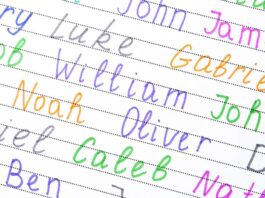 ry Luke John Jam
ob William Gabrie
Noah Oliver Joh
iel Caleb
Ben Nat